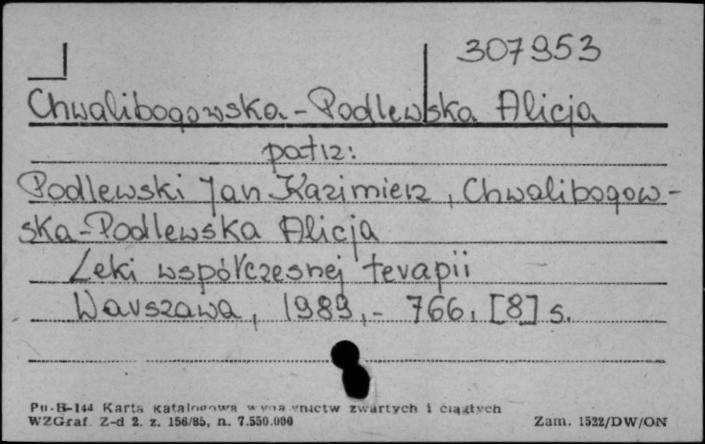 307953
Chwalibogowska-Podlewska Alicja
patrz:
Podlewski Jan Kazimierz, Chwalibogow-
ska-Podlewska Alicja
Leki współczesnej terapii
Warszawa, 1989,- 766, [8] s.
Pu-B-144 Karta katalogowa wydawnictw zwartych i ciągłych
WZGraf. Z-d 2. z. 156/85, n. 7.550.000 Zam. 1522/DW/ON